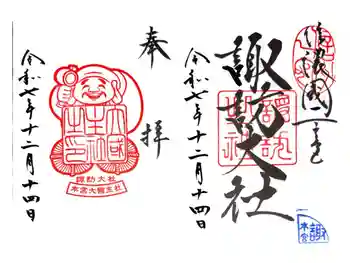 信濃國一之宮
諏訪大社
令和七年十二月十四日
諏訪
本宮
奉拝
大國主社
諏訪大社
本宮大國主社
令和七年十二月十四日